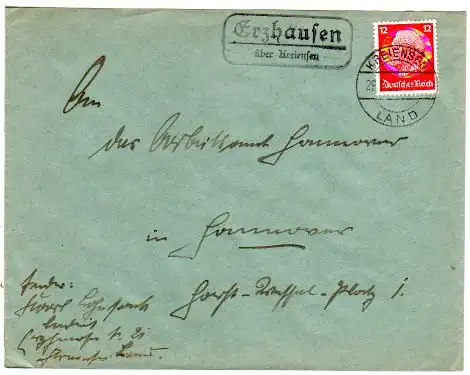 Erzhausen
über Kreiensen
12 12
Deutsches Reich
KREIENSEN
LAND
An
das Arbeitsamt Hannover
in Hannover
Horst-Wessel-Platz 1.
Sender:
Land